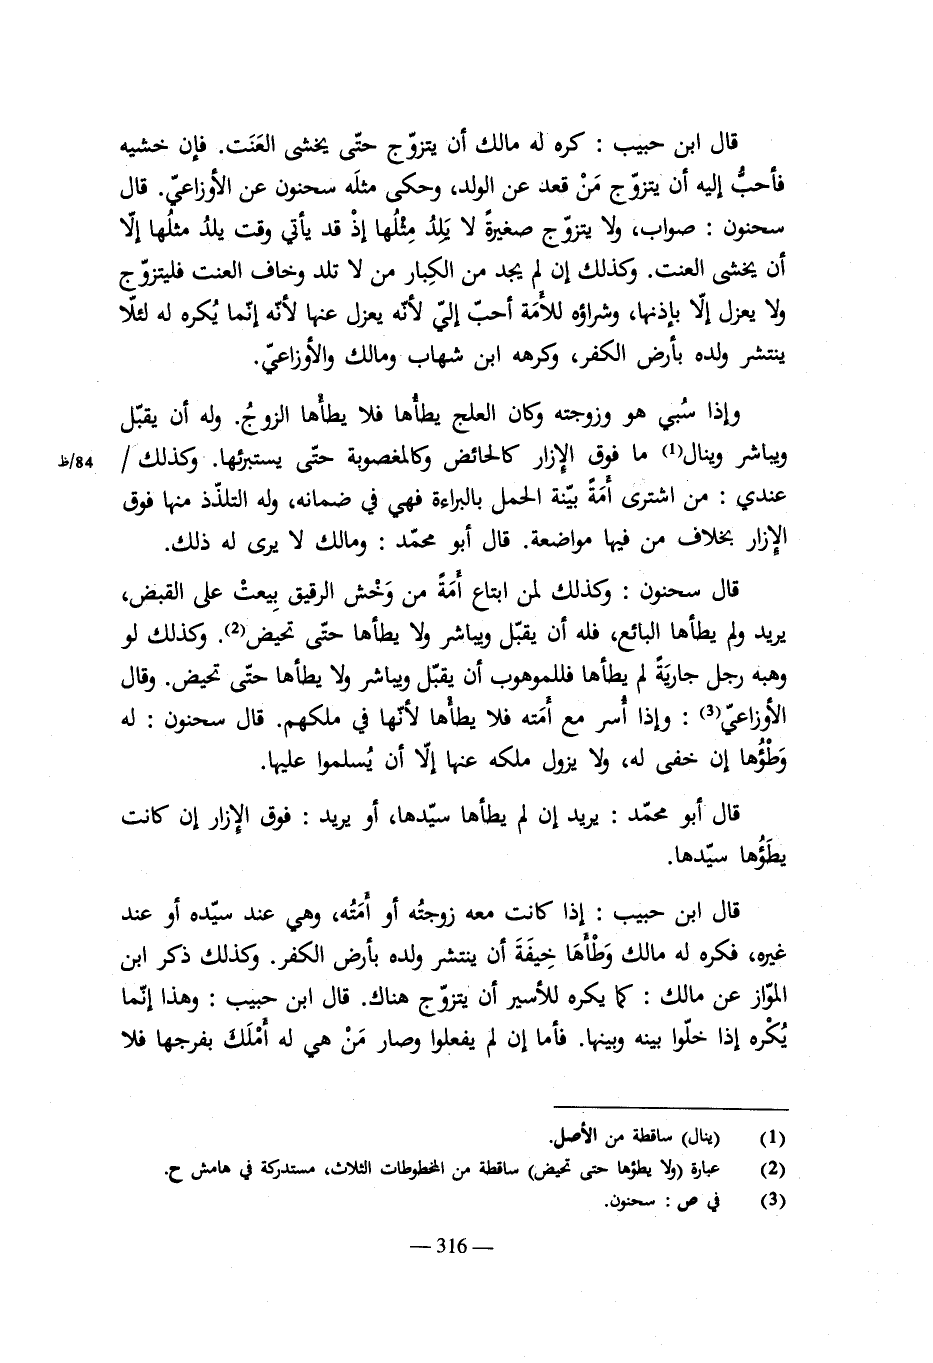 قال ابن حبيب : كره له مالك أن يتزوّج حتّى يخشى العَنَت. فإن خشيه
فأحبُّ إليه أن يتزوّج مَنْ قعد عن الولد، وحكى مثلَه سحنون عن الأوزاعيّ. قال
سحنون : صواب، ولا يتزوّج صغيرةً لا يَلِدُ مِثْلُها إذْ قد يأتي وقت يلدُ مثلُها إلّا
أن يخشى العنت. وكذلك إن لم يجد من الكِبار من لا تلد وخاف العنت فليتزوّج
ولا يعزل إلّا بإذنها، وشراؤه للأَمَة أحبّ إليّ لأنّه يعزل عنها لأنّه إنّما يُكره له لئلّا
ينتشر ولده بأرض الكفر، وكرهه ابن شهاب ومالك والأوزاعيّ.
وإذا سُبي هو وزوجته وكان العلج يطأُها فلا يطأُها الزوجُ. وله أن يقبّل
ويباشر وينال(1) ما فوق الإزار كالحائض وكالمغصوبة حتّى يستبرئها. وكذلك / 84/ظ
عندي : من اشترى أَمَةً بيّنة الحمل بالبراءة فهي في ضمانه، وله التلذّذ منها فوق
الإزار بخلاف من فيها مواضعة. قال أبو محمّد : ومالك لا يرى له ذلك.
قال سحنون : وكذلك لمن ابتاع أَمَةً من وَخْش الرقيق بِيعتْ على القبض،
يريد ولم يطأها البائع، فله أن يقبّل ويباشر ولا يطأها حتّى تحيض(2). وكذلك لو
وهبه رجل جاريَةً لم يطأها فللموهوب أن يقبّل ويباشر ولا يطأها حتّى تحيض. وقال
الأوزاعيّ(3) : وإذا أُسر مع أَمَته فلا يطأْها لأنّها في ملكهم. قال سحنون : له
وَطْؤُها إن خفى له، ولا يزول ملكه عنها إلّا أن يُسلموا عليها.
قال أبو محمّد : يريد إن لم يطأها سيّدها، أو يريد : فوق الإزار إن كانت
يطَؤُها سيّدها.
قال ابن حبيب : إذا كانت معه زوجتُه أو أَمَتُه، وهي عند سيّده أو عند
غيره، فكره له مالك وَطْأَهَا خِيفَةَ أن ينتشر ولده بأرض الكفر. وكذلك ذكر ابن
الموّاز عن مالك : كما يكره للأسير أن يتزوّج هناك. قال ابن حبيب : وهذا إنّما
يُكْره إذا خلّوا بينه وبينها. فأما إن لم يفعلوا وصار مَنْ هي له أَمْلَكَ بفرجها فلا
(1) (ينال) ساقطة من الأصل.
(2) عبارة (ولا يطؤها حتى تحيض) ساقطة من المخطوطات الثلاث، مستدركة في هامش ح.
(3) في ص : سحنون.
— 316 —